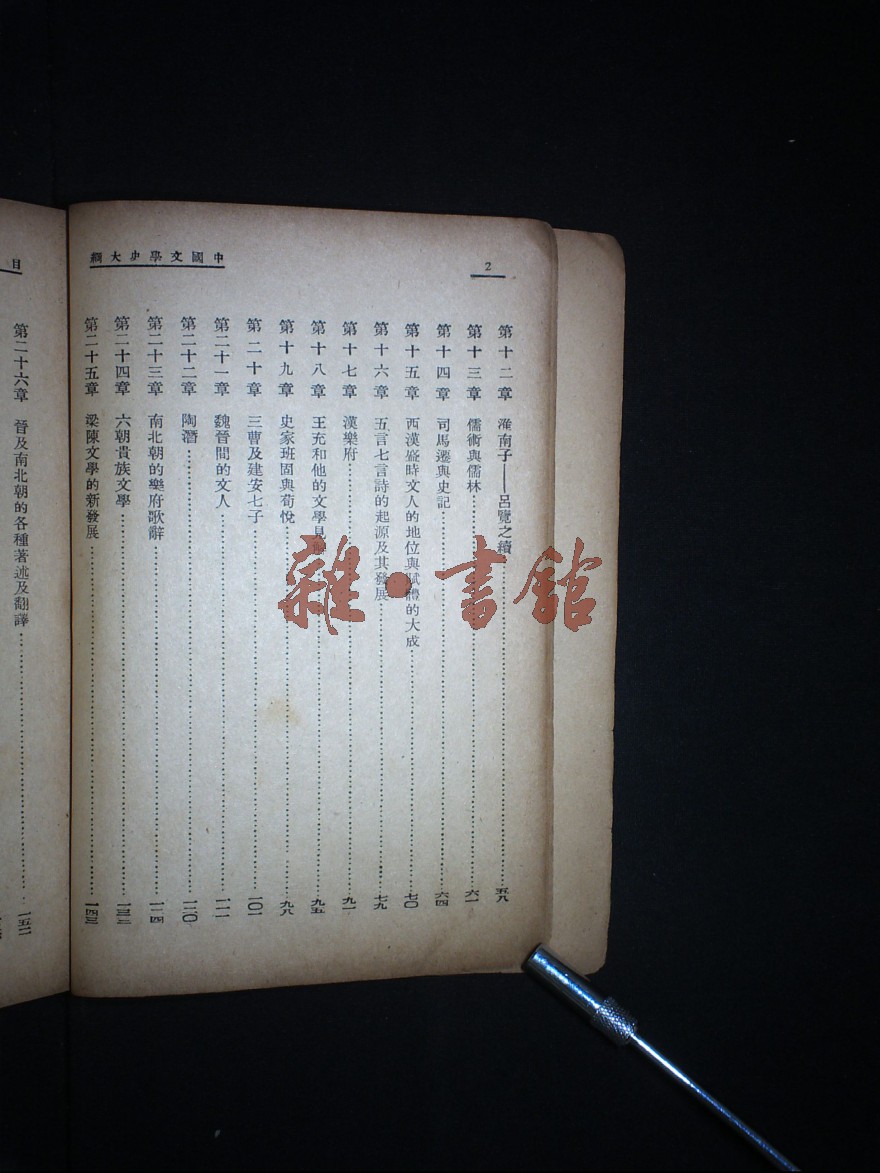 中國文學史大綱
2
第十二章　淮南子——呂覽之續……五八
第十三章　儒術與儒林……六一
第十四章　司馬遷與史記……六四
第十五章　西漢盛時文人的地位與賦體的大成……七〇
第十六章　五言七言詩的起源及其發展……七九
第十七章　漢樂府……九一
第十八章　王充和他的文學見解……九五
第十九章　史家班固與荀悅……九八
第二十章　三曹及建安七子……一〇一
第二十一章　魏晉間的文人……一一一
第二十二章　陶潛……一二〇
第二十三章　南北朝的樂府歌辭……一二四
第二十四章　六朝貴族文學……一三三
第二十五章　梁陳文學的新發展……一四三
目
第二十六章　晉及南北朝的各種著述及翻譯……一五二
雜·書館